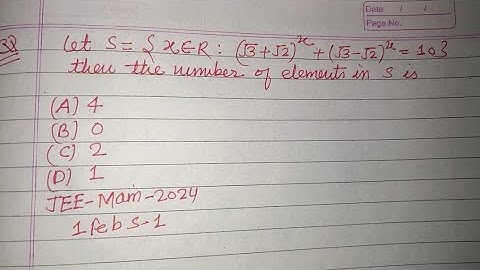 Date / /
Page No.
Let S = { x∈R : (√3+√2)^x + (√3-√2)^x = 10}
then the number of elements in S is
(A) 4
(B) 0
(C) 2
(D) 1
JEE-Main-2024
1 Feb S-1